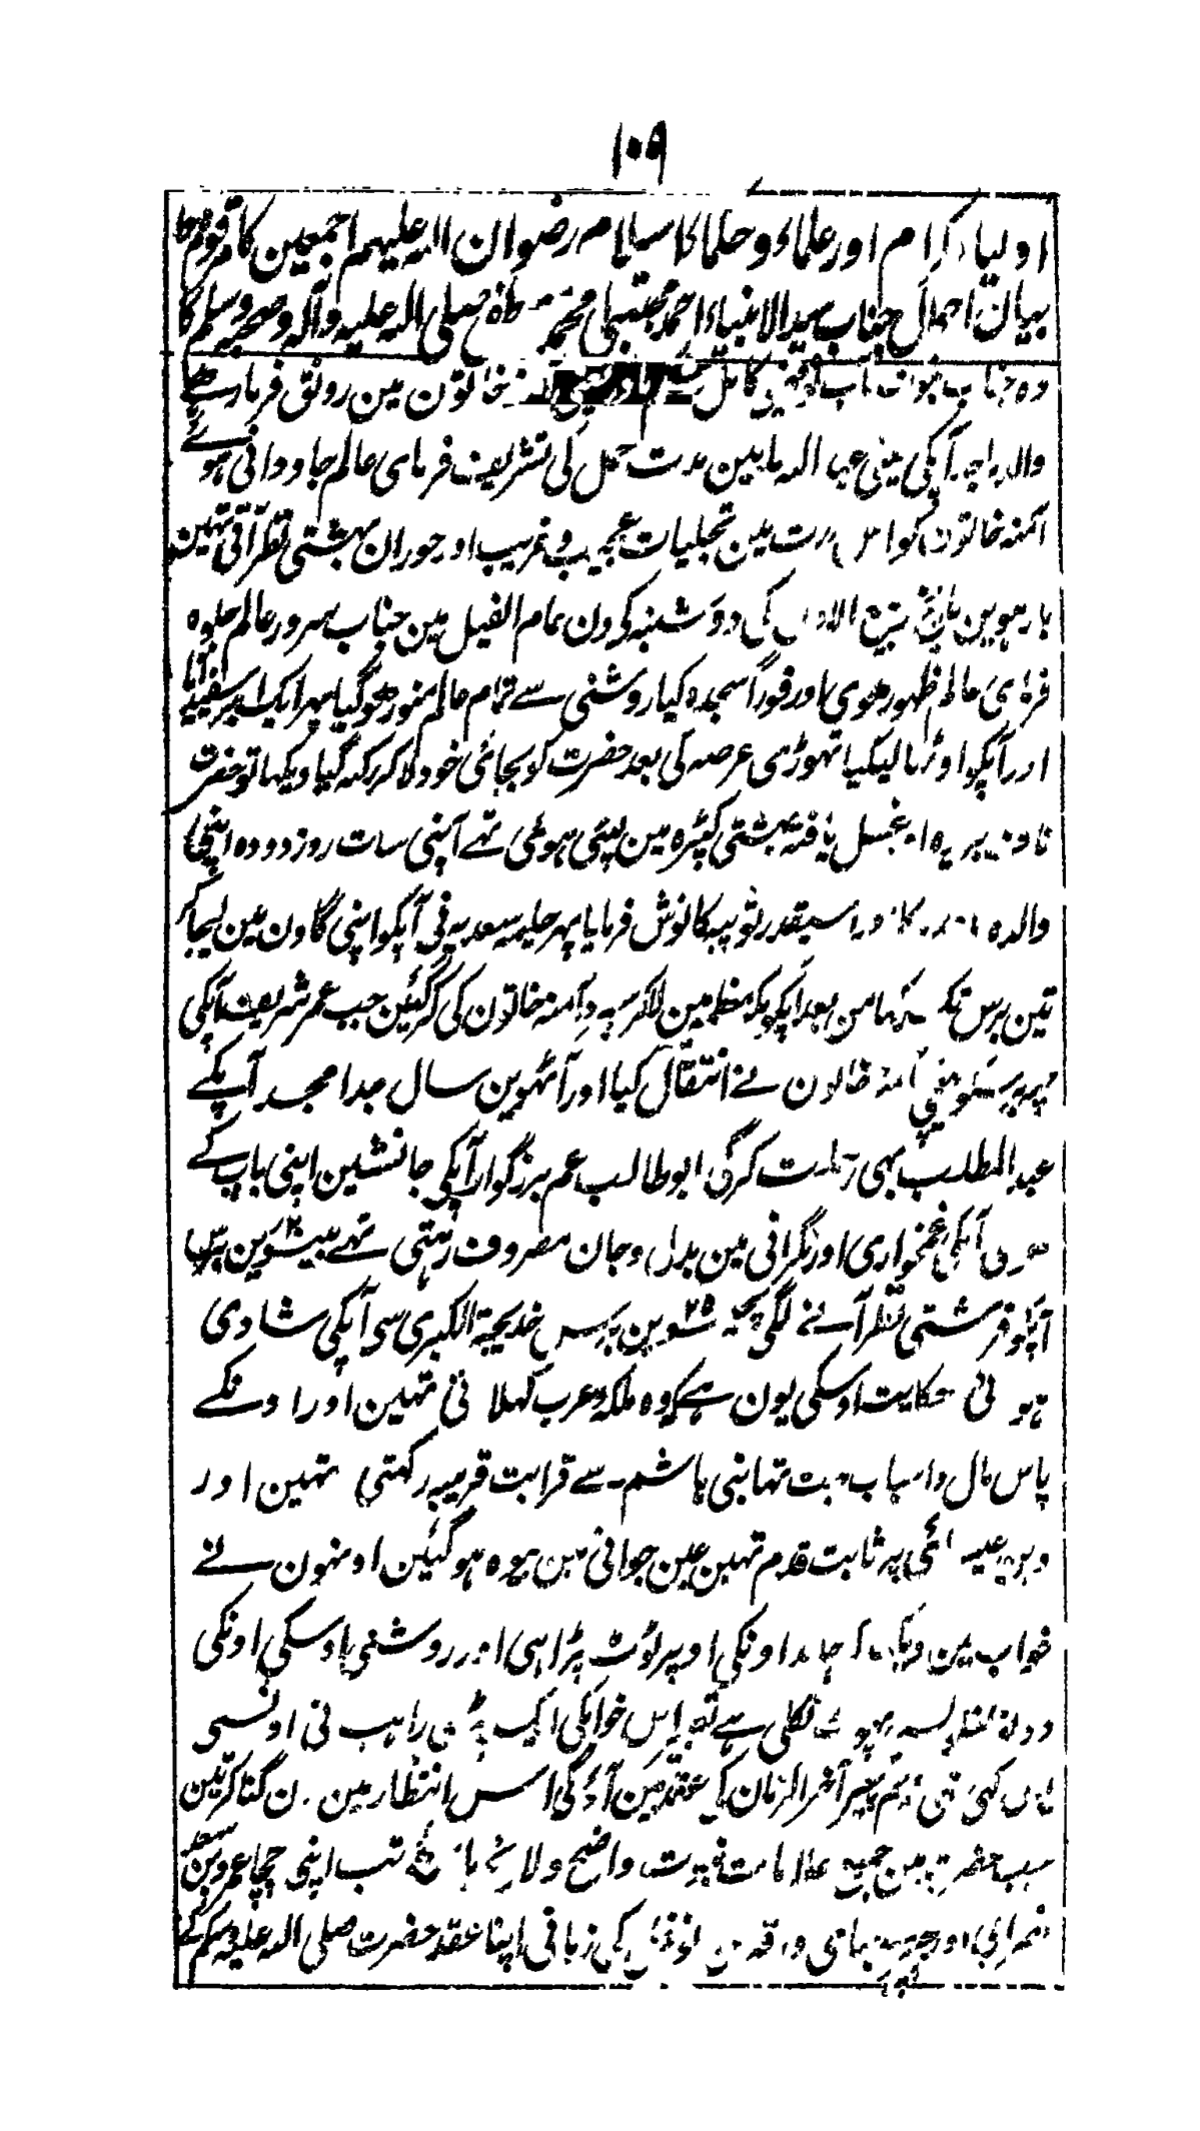 ۱۰۹
اولیاء کرام اور علماء و حکما کا سلام رضوان اللہ علیہم اجمعین کا مرقوم
بیان احمال جناب سید الانبیاء احمد مجتبی محمد صلی اللہ علیہ وآلہ وصحبہ وسلم کا
وہ جناب کامل خاتون مین رونق فرما رہے
والد آپکی عبد اللہ مابین مدت حمل کی تشریف فرمای عالم جاودانی ہوئے
آمنہ خاتون کو اس مدت مین تجلیات عجیب و غریب اور حوران بہشتی نظر آتی تہین
بارہوین ربیع الاول کی دوشنبہ کی دن عام الفیل مین جناب سرور عالم جلوہ
فرمای عالم ظہور ہوی اور فوراً سجدہ کیا روشنی سے تمام عالم منور ہو گیا پہر ایک ابر سفید آیا
اور آپکو اوڑہا لیگیا تہوڑی عرصہ کی بعد حضرت کو بجائی خود لا کر رکہہ گیا دیکہا تو حضرت
ناف بریدہ اور غسل یافتہ بہشتی کپڑہ مین لپٹی ہوئی تہے آپنی سات روز دودہ اپنی
والدہ کا اور اسیقدر ثویبہ کا نوش فرمایا پہر حلیمہ سعدیہ نی آپکو اپنی گاون مین لیجا کر
تین برس تک رکہا من بعد آپکو مکہ معظمہ مین لاکر سپرد آمنہ خاتون کی کر گئین جب عمر شریف آپکی
آمنہ خاتون نے انتقال کیا اور آٹہوین سال جد امجد آپکے
عبد المطلب بہی رحلت کر گئی ابو طالب عم بزرگوار آپکی جانشین اپنی باپ کے
آپکی غمخواری اور نگرانی مین بدل و جان مصروف رہتی تہے بیسوین ۲۰ برس
آپکو فرشتی نظر آنے لگی پچیسوین ۲۵ برس خدیجۃ الکبری سی آپکی شادی
ہوئی حکایت اوسکی یون ہے کہ وہ ملکہ عرب کہلاتی تہین اور اونکے
پاس مال و اسباب بہت تہا بنی ہاشم سے قرابت قریبہ رکہتی تہین اور
دین عیسائی پر ثابت قدم تہین عین جوانی مین بیوہ ہو گئین اونہون نے
خواب مین دیکہا کہ چاند اونکی اوپر ٹوٹ پڑا ہی اور روشنی اوسکی اونکی
نکلی ہے تعبیر اس خوابکی ایک راہب نی اونسی
کہی تہی تم پیغمبر آخر الزمان کی عقد مین آؤگی اس انتظار مین دن گنا کرتین
جب حضرت مین جمیع علامات نبوت واضح و لائح پائے تب اپنی چچا عمرو بن سعد
نوفل کی زبانی اپنا عقد حضرت صلی اللہ علیہ وسلم کے